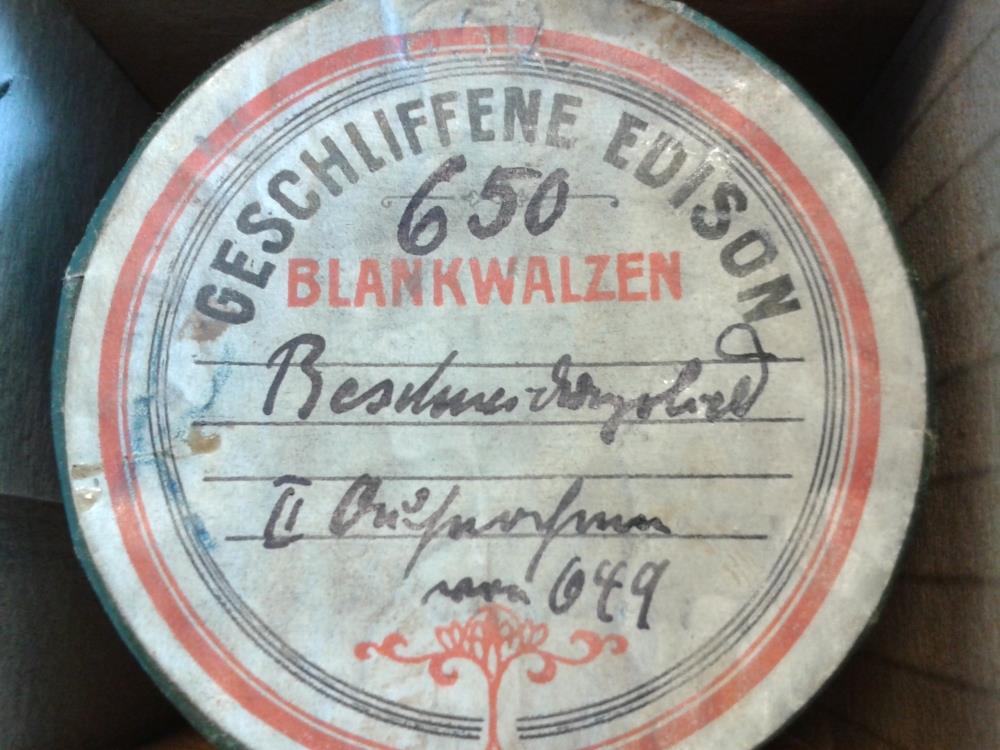 GESCHLIFFENE EDISON
650
BLANKWALZEN
Beschneidungslied
II Aufnahme
von 649